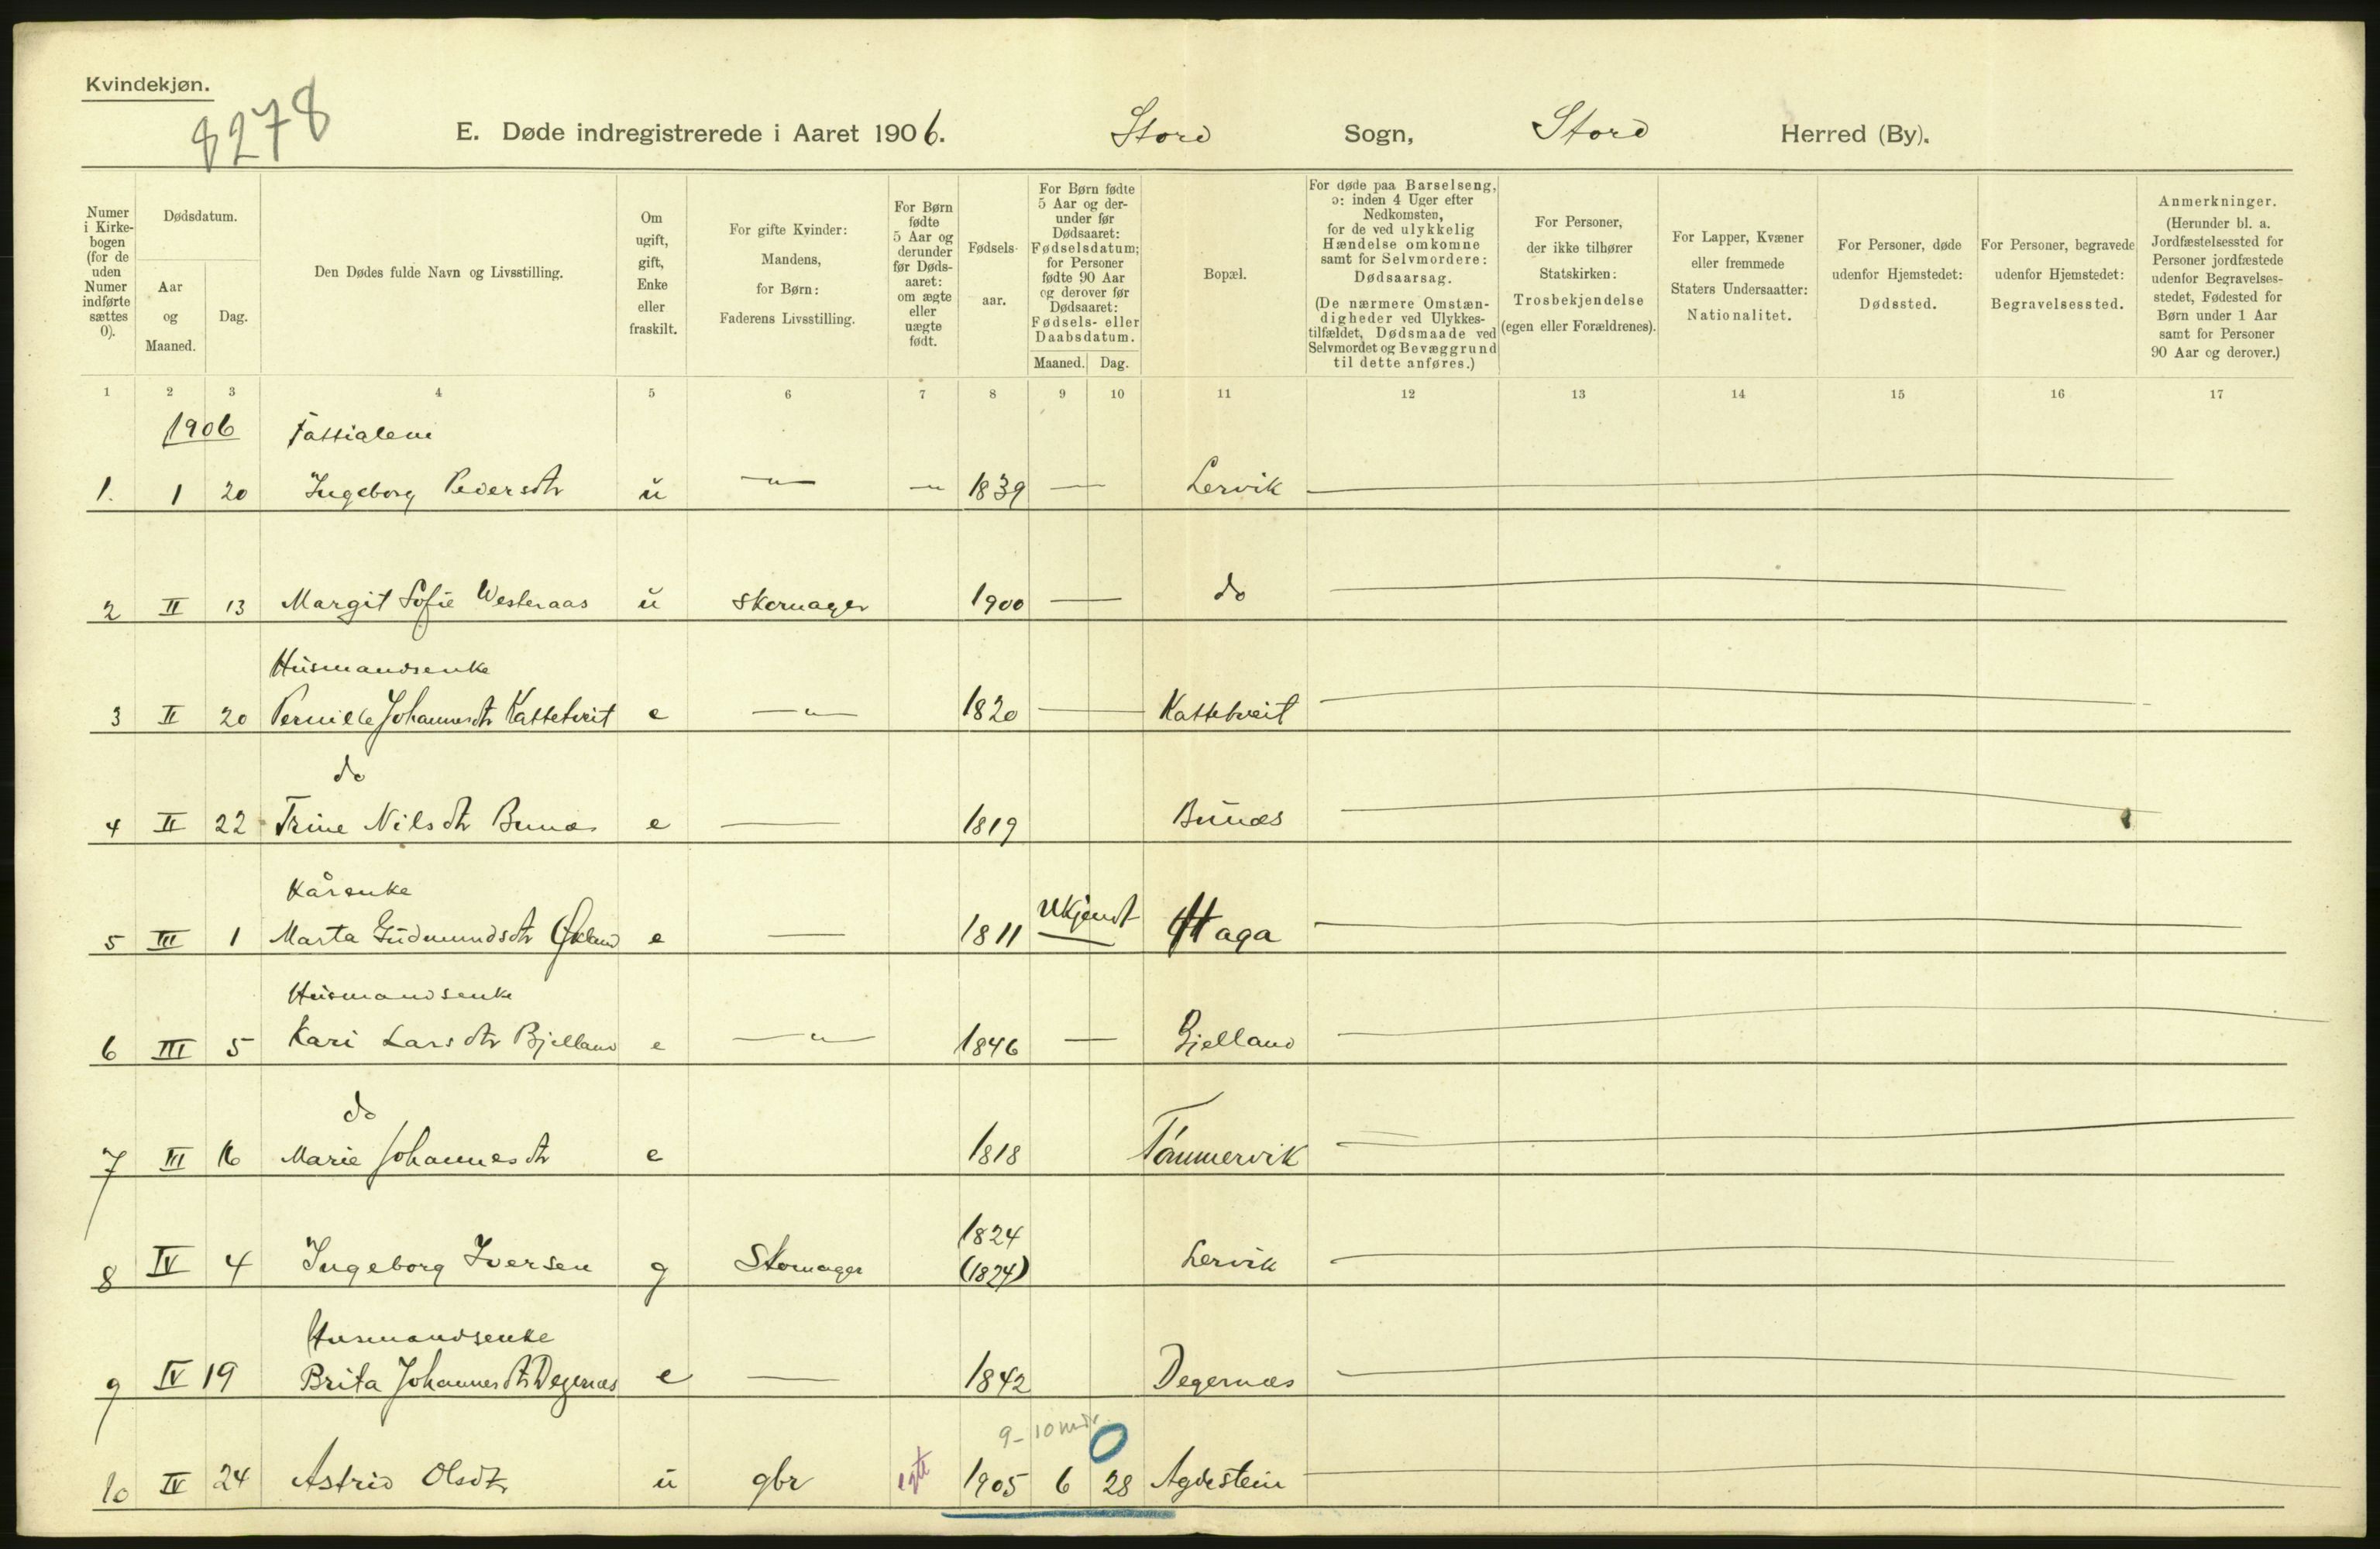 Kvindekjøn.
8278
E. Døde indregistrerede i Aaret 1906. Stord Sogn, Stord Herred (By).
Numer i Kirkebogen (for de uden Numer indførte sættes 0).
Dødsdatum.
Aar og Maaned.
Dag.
Den Dødes fulde Navn og Livsstilling.
Om ugift, gift, Enke eller fraskilt.
For gifte Kvinder: Mandens, for Børn: Faderens Livsstilling.
For Børn fødte 5 Aar og derunder før Dødsaaret: om ægte eller uægte født.
Fødselsaar.
For Børn fødte 5 Aar og derunder før Dødsaaret: Fødselsdatum; for Personer fødte 90 Aar og derover før Dødsaaret: Fødsels- eller Daabsdatum.
Maaned. Dag.
Bopæl.
For døde paa Barselseng, ɔ: inden 4 Uger efter Nedkomsten, for de ved ulykkelig Hændelse omkomne samt for Selvmordere: Dødsaarsag.
(De nærmere Omstændigheder ved Ulykkestilfældet, Dødsmaade ved Selvmordet og Bevæggrund til dette anføres.)
For Personer, der ikke tilhører Statskirken: Trosbekjendelse (egen eller Forældrenes).
For Lapper, Kvæner eller fremmede Staters Undersaatter: Nationalitet.
For Personer, døde udenfor Hjemstedet: Dødssted.
For Personer, begravede udenfor Hjemstedet: Begravelsessted.
Anmerkninger. (Herunder bl. a. Jordfæstelsessted for Personer jordfæstede udenfor Begravelsesstedet, Fødested for Børn under 1 Aar samt for Personer 90 Aar og derover.)
1 2 3 4 5 6 7 8 9 10 11 12 13 14 15 16 17
1906 Fattiglem
1. 1 20 Ingeborg Pedersdtr u — " — — " 1839 — Lervik —
2 II 13 Margit Sofie Westeraas u skomager 1900 — do —
Husmandsenke
3 II 20 Pernille Johannesdtr Kattetveit e — " — 1820 — Kattetveit —
do
4 II 22 Trine Nilsdtr Bunæs e — 1819 Bunæs —
Kårenke
5 III 1 Marta Gudmundsdtr Økland e — 1811 Ukjendt Haga —
Husmandsenke
6 III 5 Kari Larsdtr Bjelland e — " — 1846 — Bjelland —
do
7 III 16 Marie Johannesdtr e 1818 Tømmervik —
1824
8 IV 4 Ingeborg Iversen g Skomager (1824) Lervik —
Husmandsenke
9 IV 19 Brita Johannesdtr Degernæs e — 1842 Degernæs —
9-10 mdr. 0
10 IV 24 Astrid Olsdtr u gbr egte 1905 6 28 Agdestein —